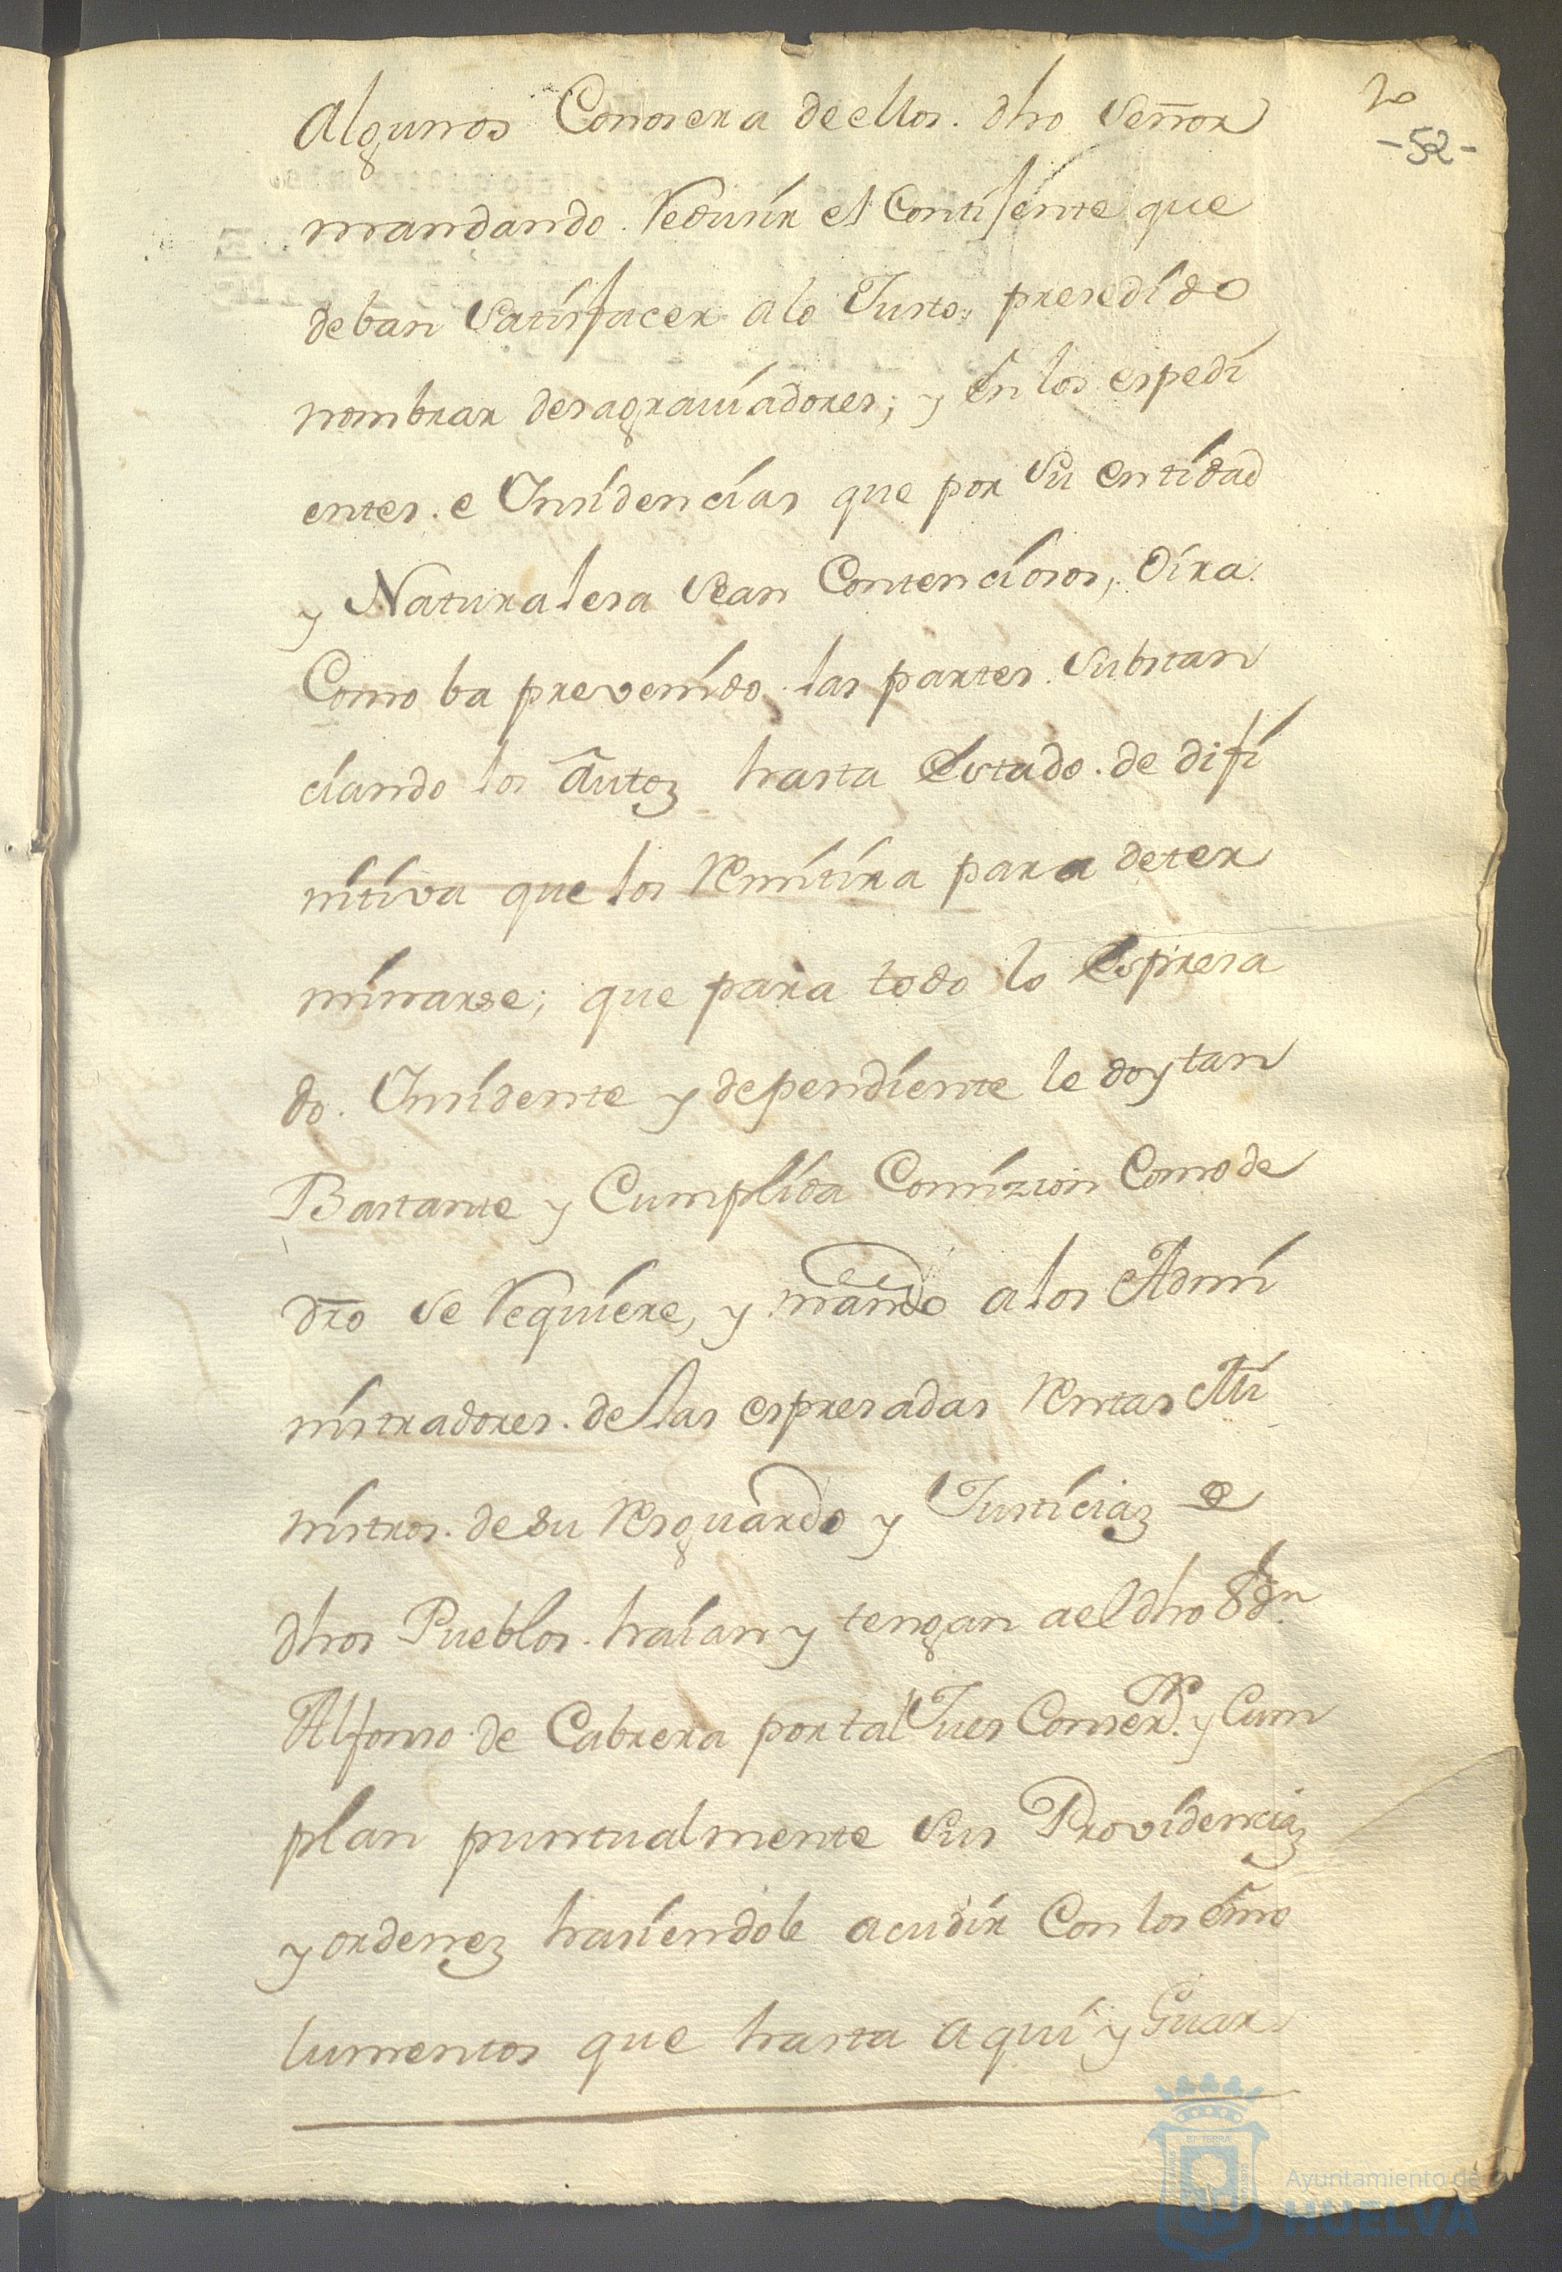 2o
-52-
Algunos Conosera de ellos. dho Señor
mandando. Redusir el Contisente que
deban Satisfacer a lo Justo, presedido
nombrar desagraviadores; y en los espedi
entes. e Insidencias que por Su entidad
y Naturalesa Sean Contenciosos, Oira.
Como ba prevenido. las partes. Substan
ciando los autoz hasta Estado. de difi
nitiva que los Remitira para deter
minarse; que para todo lo Espresa
do. Insidente y dependiente le doy tan
Bastante y Cumplida Comizion Como de
dro Se Requiere, y mando a los Admi
nistradores. de las espresadas Rentas Mi
nistros. de su Resguardo y Justiciaz e
dhos Pueblos. haian y tengan a el dho Sr Dn
Alfonso de Cabrera por tal Jues Conserr. y Cum
plan puntualmente Sus Providenciaz
y ordenez hasiendole acudir Con los emo
lumentos que hasta aqui y Guar
Ayuntamiento de
HUELVA